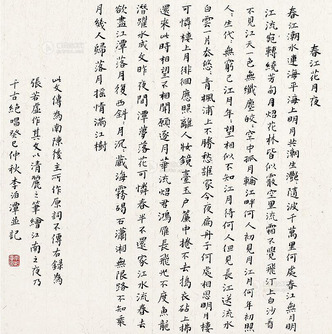 春江花月夜
春江潮水連海平海上明月共潮生灩灩隨波千萬里何處春江無月明
江流宛轉繞芳甸月照花林皆似霰空里流霜不覺飛汀上白沙看
不見江天一色無纖塵皎皎空中孤月輪江畔何人初見月江月何年初照
人人生代代無窮已江月年年望相似不知江月待何人但見長江送流水
白雲一片去悠悠青楓浦上不勝愁誰家今夜扁舟子何處相思明月樓
可憐樓上月徘徊應照離人妝鏡臺玉戶簾中捲不去搗衣砧上拂
還來此時相望不相聞願逐月華流照君鴻雁長飛光不度魚龍
潛躍水成文昨夜閒潭夢落花可憐春半不還家江水流春去
欲盡江潭落月復西斜斜月沉沉藏海霧碣石瀟湘無限路不知乘
月幾人歸落月搖情滿江樹
以文傳為南陳後主可作原詞不傳右錄為
張若虛作其文以清麗之筆繪江南之夜乃
千古絕唱癸巳仲秋李泊潭並記